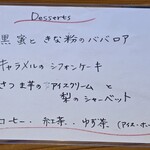 Desserts
黒蜜ときな粉のババロア
キャラメルのシフォンケーキ
さつま芋のアイスクリームと
梨のシャーベット
コーヒー・紅茶・ゆず茶（アイス・ホ